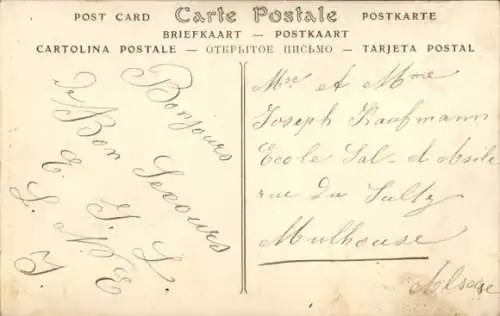 POST CARD Carte Postale POSTKARTE
BRIEFKAART — POSTKAART
CARTOLINA POSTALE — ОТКРЫТОЕ ПИСЬМО — TARJETA POSTAL
Bonjours
De Bon Secours
E. J. L.
L. N. E
T.
Mre et Mme
Joseph Kaufmann
Ecole Sal-d'Asile
rue Du Sultz
Mulhouse
Alsace